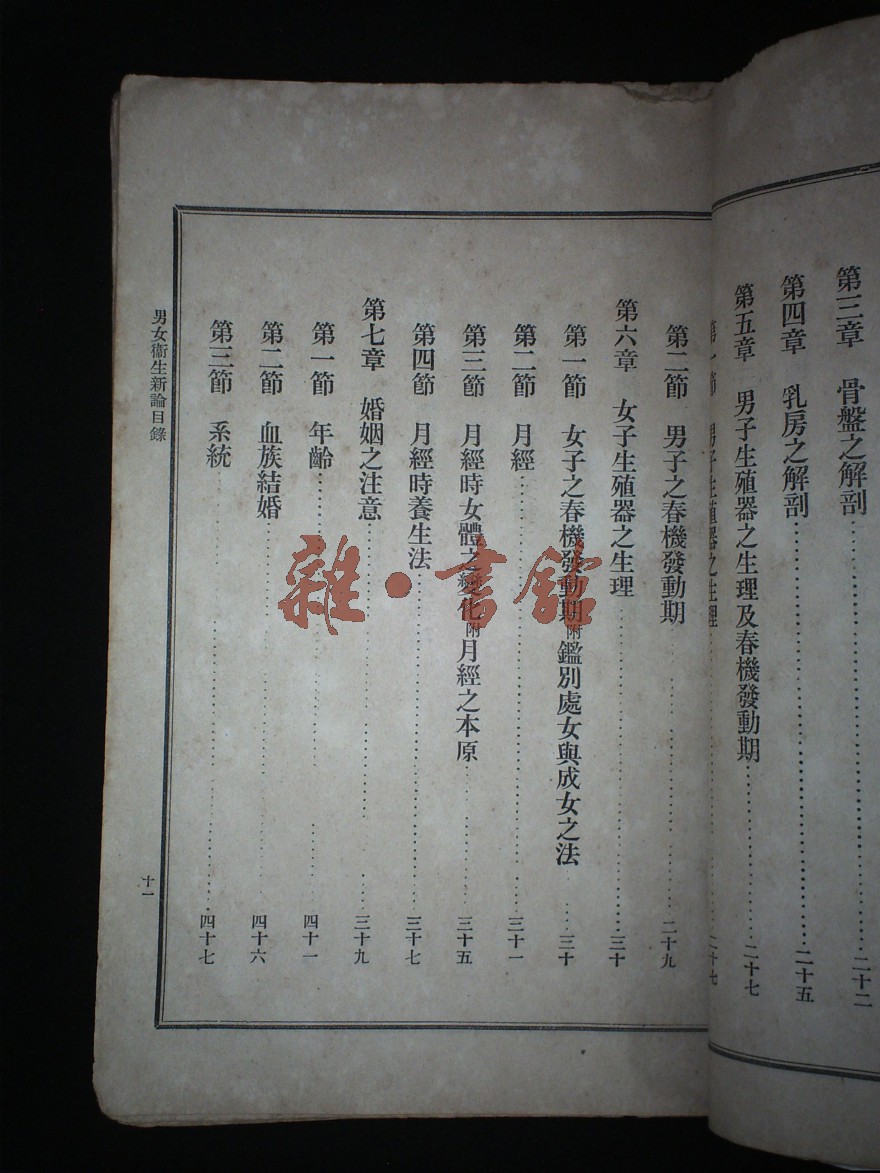 第三章　骨盤之解剖…………二十二
第四章　乳房之解剖…………二十五
第五章　男子生殖器之生理及春機發動期…………二十七
第一節　男子生殖器之生理…………二十七
第二節　男子之春機發動期…………二十九
第六章　女子生殖器之生理…………三十
第一節　女子之春機發動期附鑑別處女與成女之法…………三十
第二節　月經…………三十一
第三節　月經時女體之變化附月經之本原…………三十五
第四節　月經時養生法…………三十七
第七章　婚姻之注意…………三十九
第一節　年齡…………四十一
第二節　血族結婚…………四十六
第三節　系統…………四十七
男女衞生新論目錄
十一
雜·書館